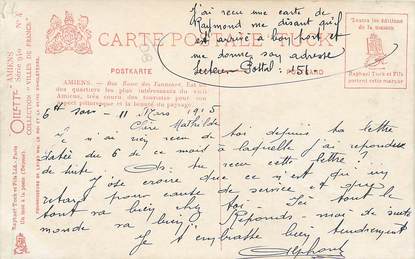 J'ai recu une carte de
Raymond me disant qu'il
est arrivé a bon port et
me donne son adresse
Secteur Postal : 51
CARTE POSTALE TUCK
POSTKARTE
POSTCARD
Toutes les éditions
de la maison
Raphael Tuck et Fils
portent cette marque
AMIENS. — Rue Basse des Tanneurs. Est un
des quartiers les plus intéressants du vieil
Amiens, très couru des touristes pour son
aspect pittoresque et la beauté du paysage.
"AMIENS"
Série 910 Nº 4
OILETTE
COLLECTION "VILLES DE FRANCE"
Raphael Tuck et Fils Ltd. - Paris
FOURNISSEURS DE LEURS MM. LE ROI ET LA REINE D'ANGLETERRE.
11 Mars 1915
Chère Mathilde
Je n'ai rien recu de toi depuis ta lettre
datée du 6 de ce mois à laquelle j'ai repondu
de suite. As tu recu cette lettre?
J'ose croire que ce n'est qu'un
retard pour cause de service et que
tout va bien chez toi. Ici tout le
monde va bien. Reponds-moi de suite
Je t'embrasse bien tendrement
Alphonse